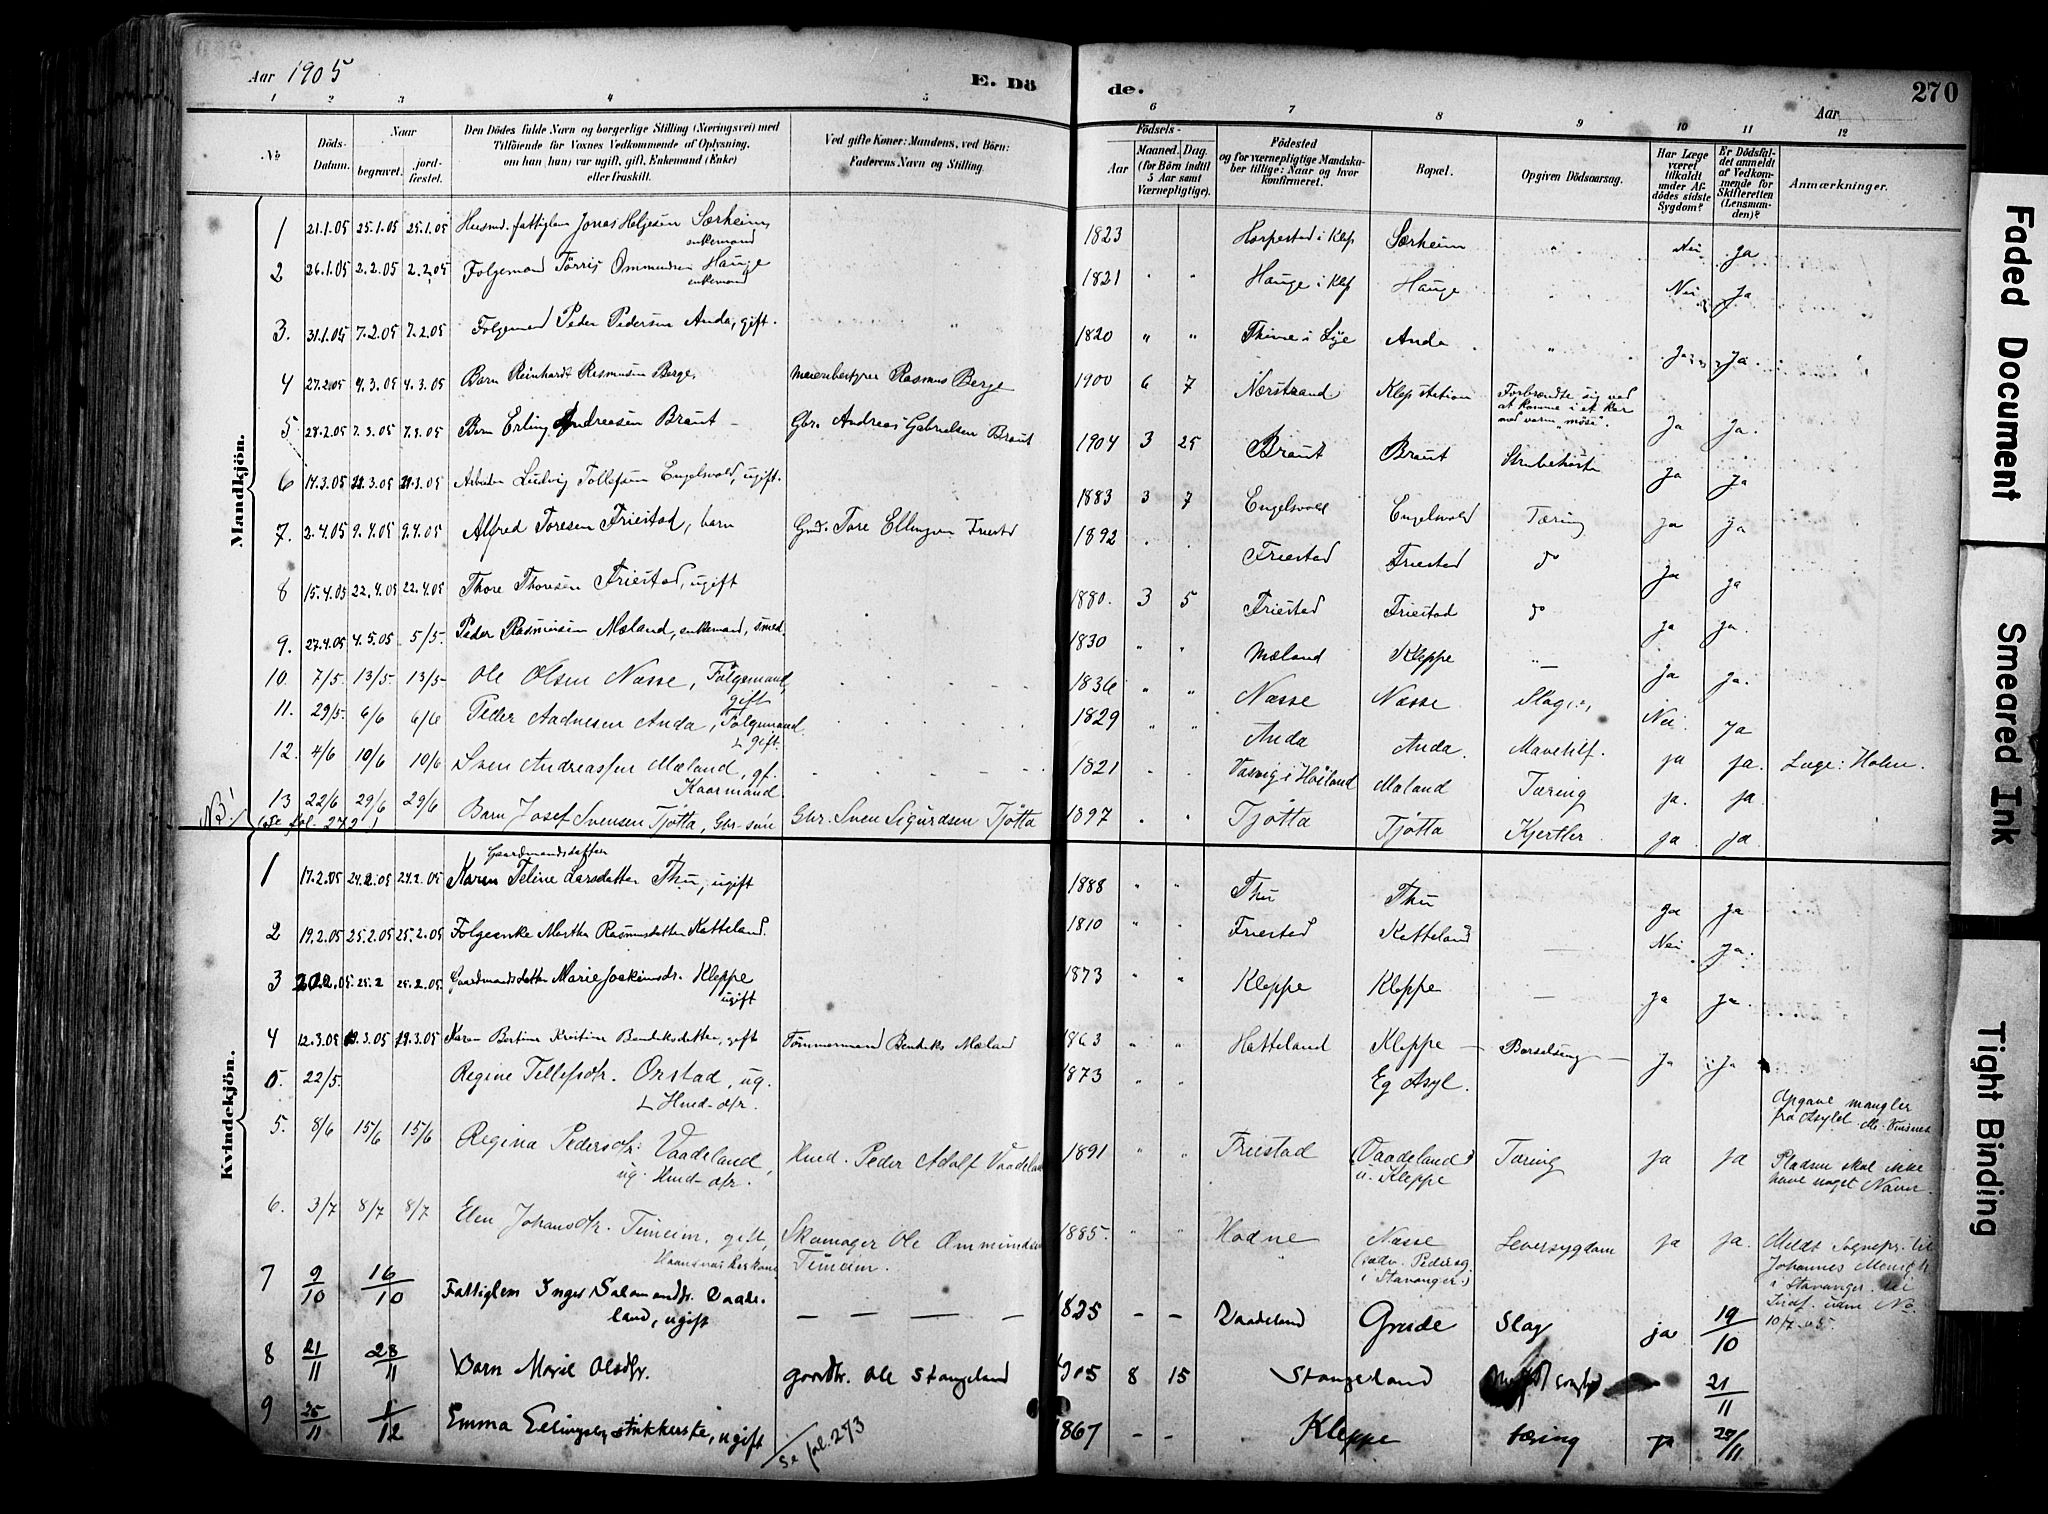 Aar 1905
E. Dö
de.
Aar
270
1 2 3 4 5 6 7 8 9 10 11 12
No
Döds-
Datum.
Naar
begravet.
jord-
fæstet.
Den Dödes fulde Navn og borgerlige Stilling (Næringsvei) med
Tilföiende for Voxnes Vedkommende af Oplysning,
om han (hun) var ugift, gift, Enkemand (Enke)
eller fraskilt.
Ved gifte Koner: Mandens, ved Börn:
Faderens Navn og Stilling.
Födsels-
Aar
Maaned.
Dag.
(for Börn indtil
5 Aar samt
Værnepligtige).
Födested
og for værnepligtige Mandska-
ber tillige: Naar og hvor
konfirmeret.
Bopæl.
Opgiven Dödsaarsag.
Har Læge
været
tilkaldt
under Af-
dödes sidste
Sygdom?
Er Dödsfal-
det anmeldt
af Vedkom-
mende for
Skifteretten
(Lensman-
den)?
Anmærkninger.
Mandkjön.
1 21.1.05 25.1.05 25.1.05 Husmd. fattiglem Jonas Heljesen Særheim, enkemand 1823 Horpestad i Klep Særheim Nei Ja
2 26.1.05 2.2.05 2.2.05 Folgemand Törris Ommundsen Hauge enkemand 1821 Hauge i Klep Hauge Nei Ja
3. 31.1.05 7.2.05 7.2.05 Folgemand Peder Pedersen Anda, gift. 1820 Thime i Lye Anda Ja Ja
4 27.2.05 4.3.05 4.3.05 Barn Reinhardt Rasmusen Berge. Meieribestyrer Rasmus Berge 1900 6 7 Nærstrand Klep station Forbrændte sig ved
at komme i et kar
med varm "möse". Ja Ja.
5 28.2.05 7.3.05 7.3.05 Barn Erling Andreasen Braut Gbr. Andreas Gabrielsen Braut 1904 3 25 Braut Braut Strubehoste Ja Ja
6 17.3.05 21.3.05 21.3.05 Arbeider Ludvig Tollefsen Engelsvold, ugift. 1883 3 7 Engelsvold Engelsvold Tæring Ja Ja
7. 2.4.05 9.4.05 9.4.05 Alfred Toresen Friestad, barn Gmd. Tore Ellingsen Friestd 1892 Friestad Friestad do Ja Ja
8 15.4.05 22.4.05 22.4.05 Thore Thoresen Friestad, ugift 1880. 3 5 Friestad Friestad do Ja Ja.
9. 27.4.05 4.5.05 5/5 Peder Rasmusen Mæland, enkemand, smed. 1830 Mæland Kleppe Ja Ja.
10. 7/5. 13/5. 13/5. Ole Olsen Næsse, Fölgemand, gift 1836 Næsse Næsse Slag Nei. Ja
11. 29/5. 6/6 6/6 Peder Aadnesen Anda, Fölgemand gift. 1829 Anda Anda. Mavetilf. ja ja. Læge: Holm.
12. 4/6 10/6 10/6 Sven Andreassen Mæland, gf. Kaarmand. 1821 Vasvig i Höiland Mæland Tæring ja. ja
13 22/6 29/6 29/6 Barn Josef Svensen Tjötta, Gbr-sön Gbr. Sven Sigurdsen Tjötta 1897 Tjötta Tjötta Kjertler ja ja
NB! (Se fol. 272!
Kvindekjön.
1 17.2.05 24.2.05 24.2.05 Gaardmandsdatter
Karen Teline Larsdatter Thu, ugift 1888 Thu Thu Ja Ja
2 19.2.05 25.2.05 25.2.05 Folgeenke Martha Rasmusdatter Katteland. 1810 Friestad Katteland Nei Ja.
3 20.2.05. 25.2 25.2.05 Gaardmandsdatter Marie Joakimsdr. Kleppe ugift 1873 Kleppe Kleppe Ja Ja.
4 12.3.05 19.3.05 19.3.05 Karen Bertine Kristine Bendiksdatter, gift Tömmermand Bendiks Mæland 1863 Hatteland Kleppe Barselseng Ja Ja
5. 22/5. Regine Tellefsdtr. Orstad, ug. Hmd-dtr. 1873 Eg Asyl. Opgave mangler
fra Asylet.
5. 8/6 15/6 15/6 Regina Pedersdtr. Vaadeland, ug. Hmd-dtr. Hmd. Peder Adolf Vaadeland 1891 Friestad (Vaadeland)
u. Kleppe Tæring ja ja Pladsen skal ikke
have noget Navn.
6. 3/7 8/7 8/7 Elen Johansdtr. Timeim, gift, Skomager Ole Ommundsen
Timeim. 1885. Hodne Næsse
i Stavanger.) Leversygdom ja ja. Meldt Sognepr. til
Johannes Menigh.
i Stavanger til
Indf. uden No.
10/7-05.
7 9/10 16/10 Fattiglem Inger Salamonsdtr. Vaade-
land, ugift 1825 Vaadeland Grude Slag ja 19/10
8 21/11 28/11 Barn Marie Olsdtr. gaardbr. Ole Stangeland 1905 8 15 Stangeland 21/11
9 25/11 1/12 Emma Ellingsby strikkerske, ugift 1867 Kleppe tæring ja 27/11
Se fol. 273
Faded Document
Smeared Ink
Tight Binding